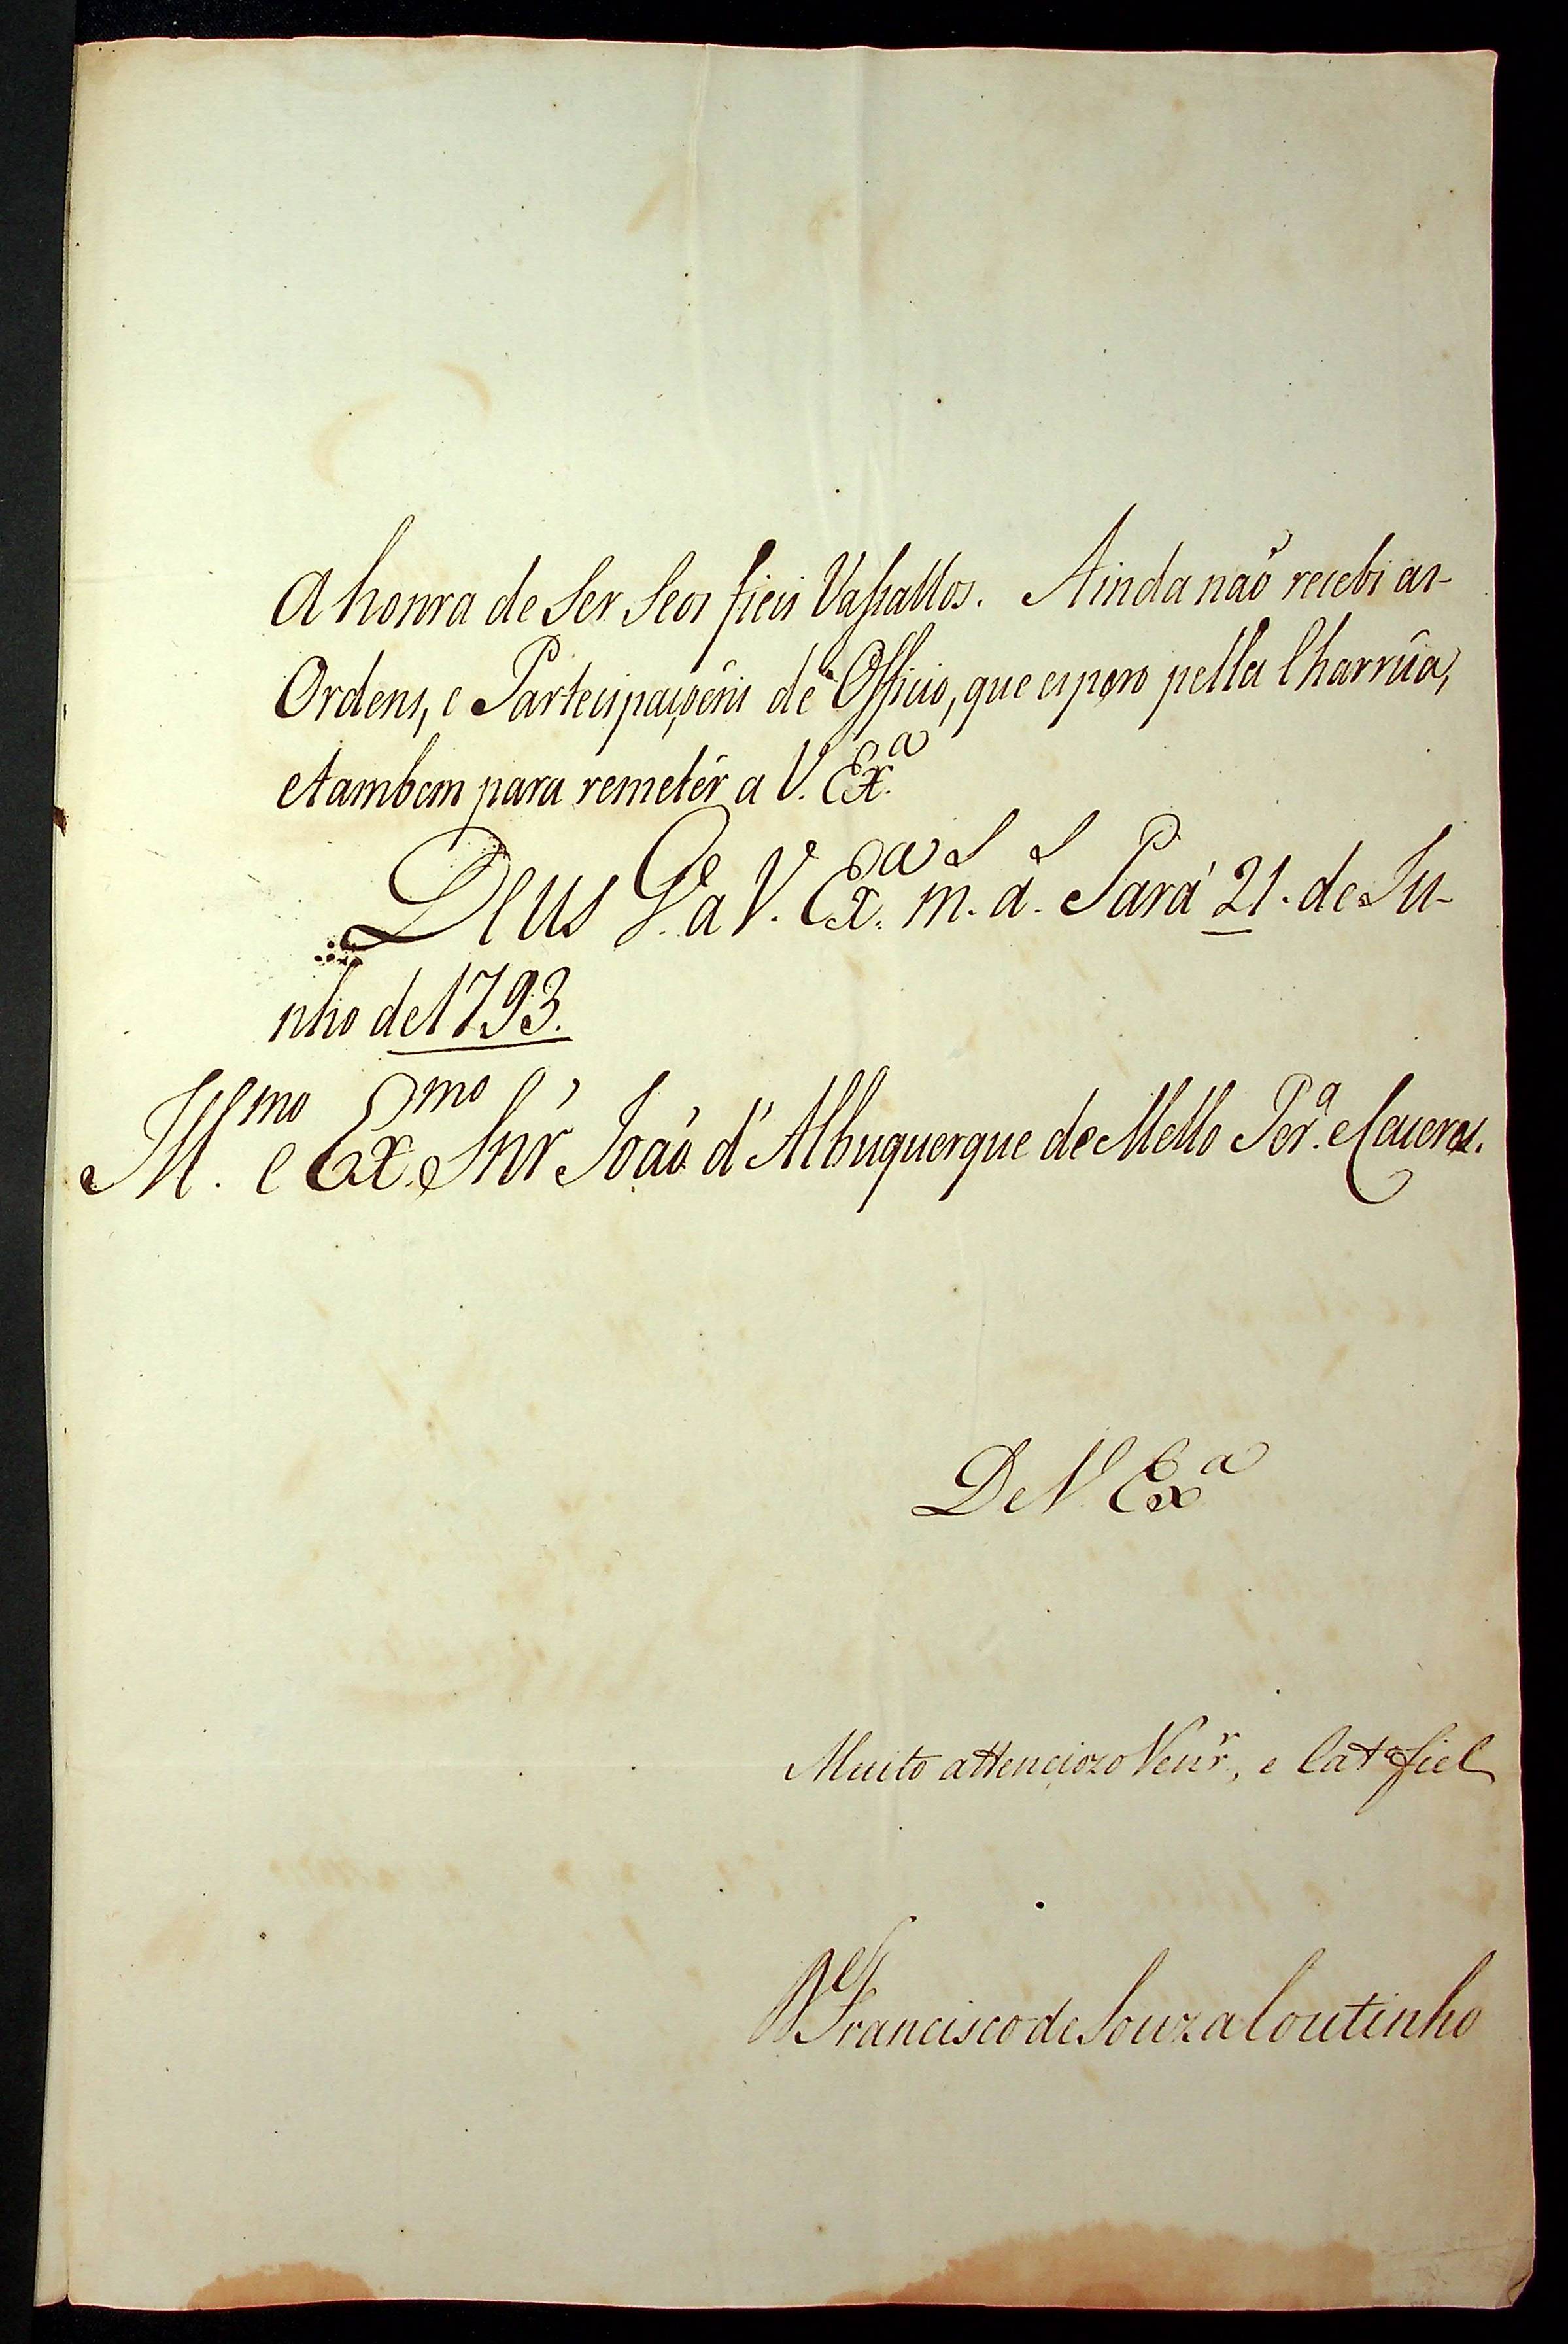 A honra de Ser Seos fieis Vassallos. Ainda não recebi as-
Ordens, e Partecipaçoẽns de Officio, que espero pella Charrûa,
e tambem para remetêr a V. Ex.ª
Deus G.e a V. Ex.ª m.s a.s Pará 21. de Ju-
nho de 1793.
Ill.mo e Ex.mo Snr' João d'Albuquerque de Mello Per.ª e Caceres.
De V. Ex.ª
Muito attenciozo Ven.r, e Cat.º fiel
D. Francisco de Souza Coutinho